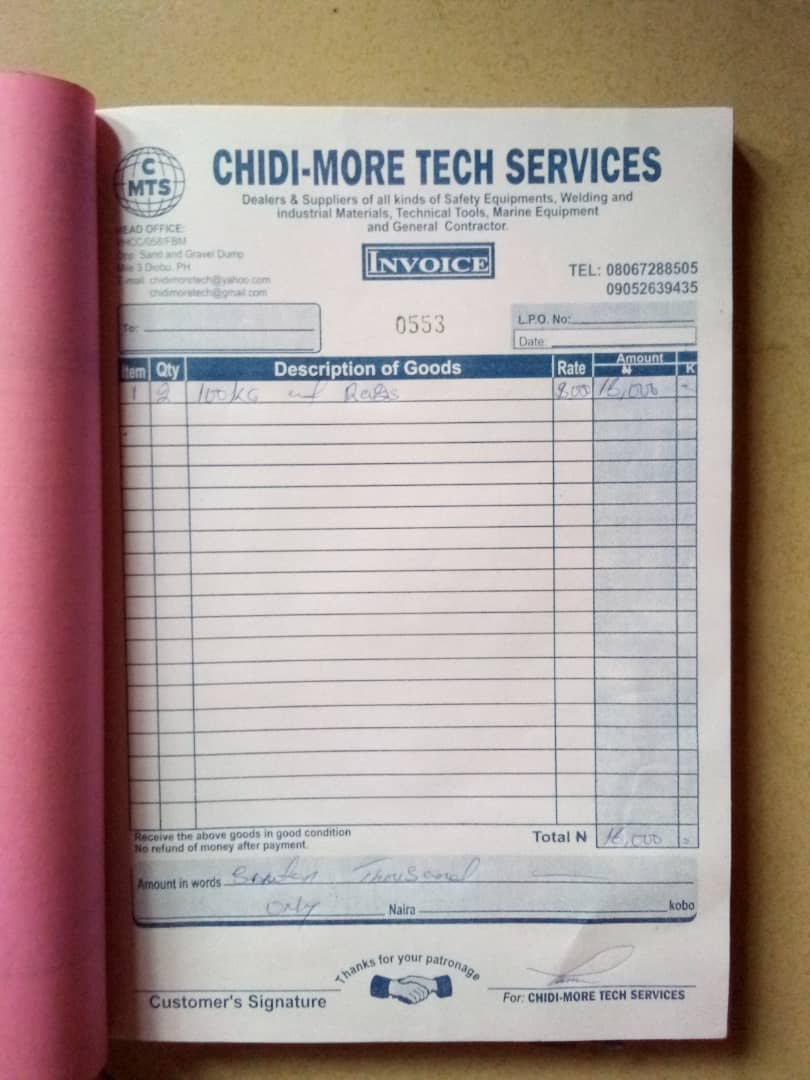 C
MTS
CHIDI-MORE TECH SERVICES
Dealers & Suppliers of all kinds of Safety Equipments, Welding and
industrial Materials, Technical Tools, Marine Equipment
and General Contractor.
EAD OFFICE:
Sand and Gravel Dump
Mile 3 Diobu, PH
mail: chidimoretech@yahoo.com
chidimoretech@gmail.com
INVOICE
TEL: 08067288505
09052639435
To:
0553
L.P.O. No:
Date:
tem Qty Description of Goods Rate Amount ₦ K
1 2 100kg of Rags 800 16,000 -
Receive the above goods in good condition
No refund of money after payment.
Total ₦ 16,000 -
Amount in words Thousand
Only Naira kobo
Thanks for your patronage
Customer's Signature
For: CHIDI-MORE TECH SERVICES